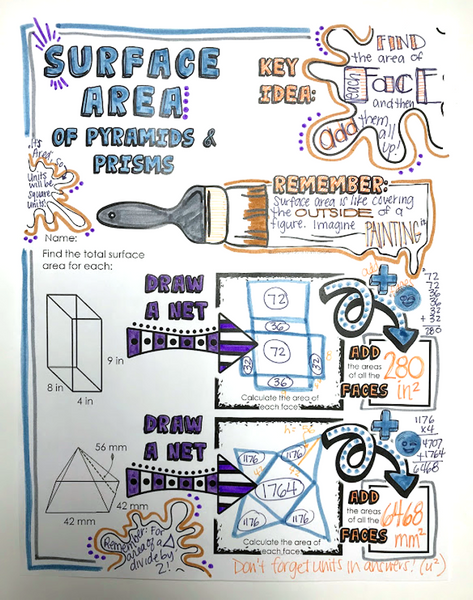 SURFACE
AREA
OF PYRAMIDS &
PRISMS
KEY
IDEA:
FIND
the area of
each FACE
and then
add them
all
up!
It's
Area, so
Units
will be
square
units!
REMEMBER:
Surface area is like covering
the OUTSIDE of a
figure. Imagine PAINTING it!
Name:
Find the total surface
area for each:
9 in
8 in
4 in
DRAW
A NET
72
36
72
32
32
36
Calculate the area of
each face
72
72
36
36
32
+ 32
280
ADD
the areas
of all the
FACES
280
in²
56 mm
42 mm
42 mm
DRAW
A NET
1176
1176
1764
1176
1176
Calculate the area of
each face
1176
x4
4707
+1764
6468
ADD
the areas
of all the
FACES
6468
mm²
Remember: For
area of a
divide by
2!
Don't forget units in answers! (u²)